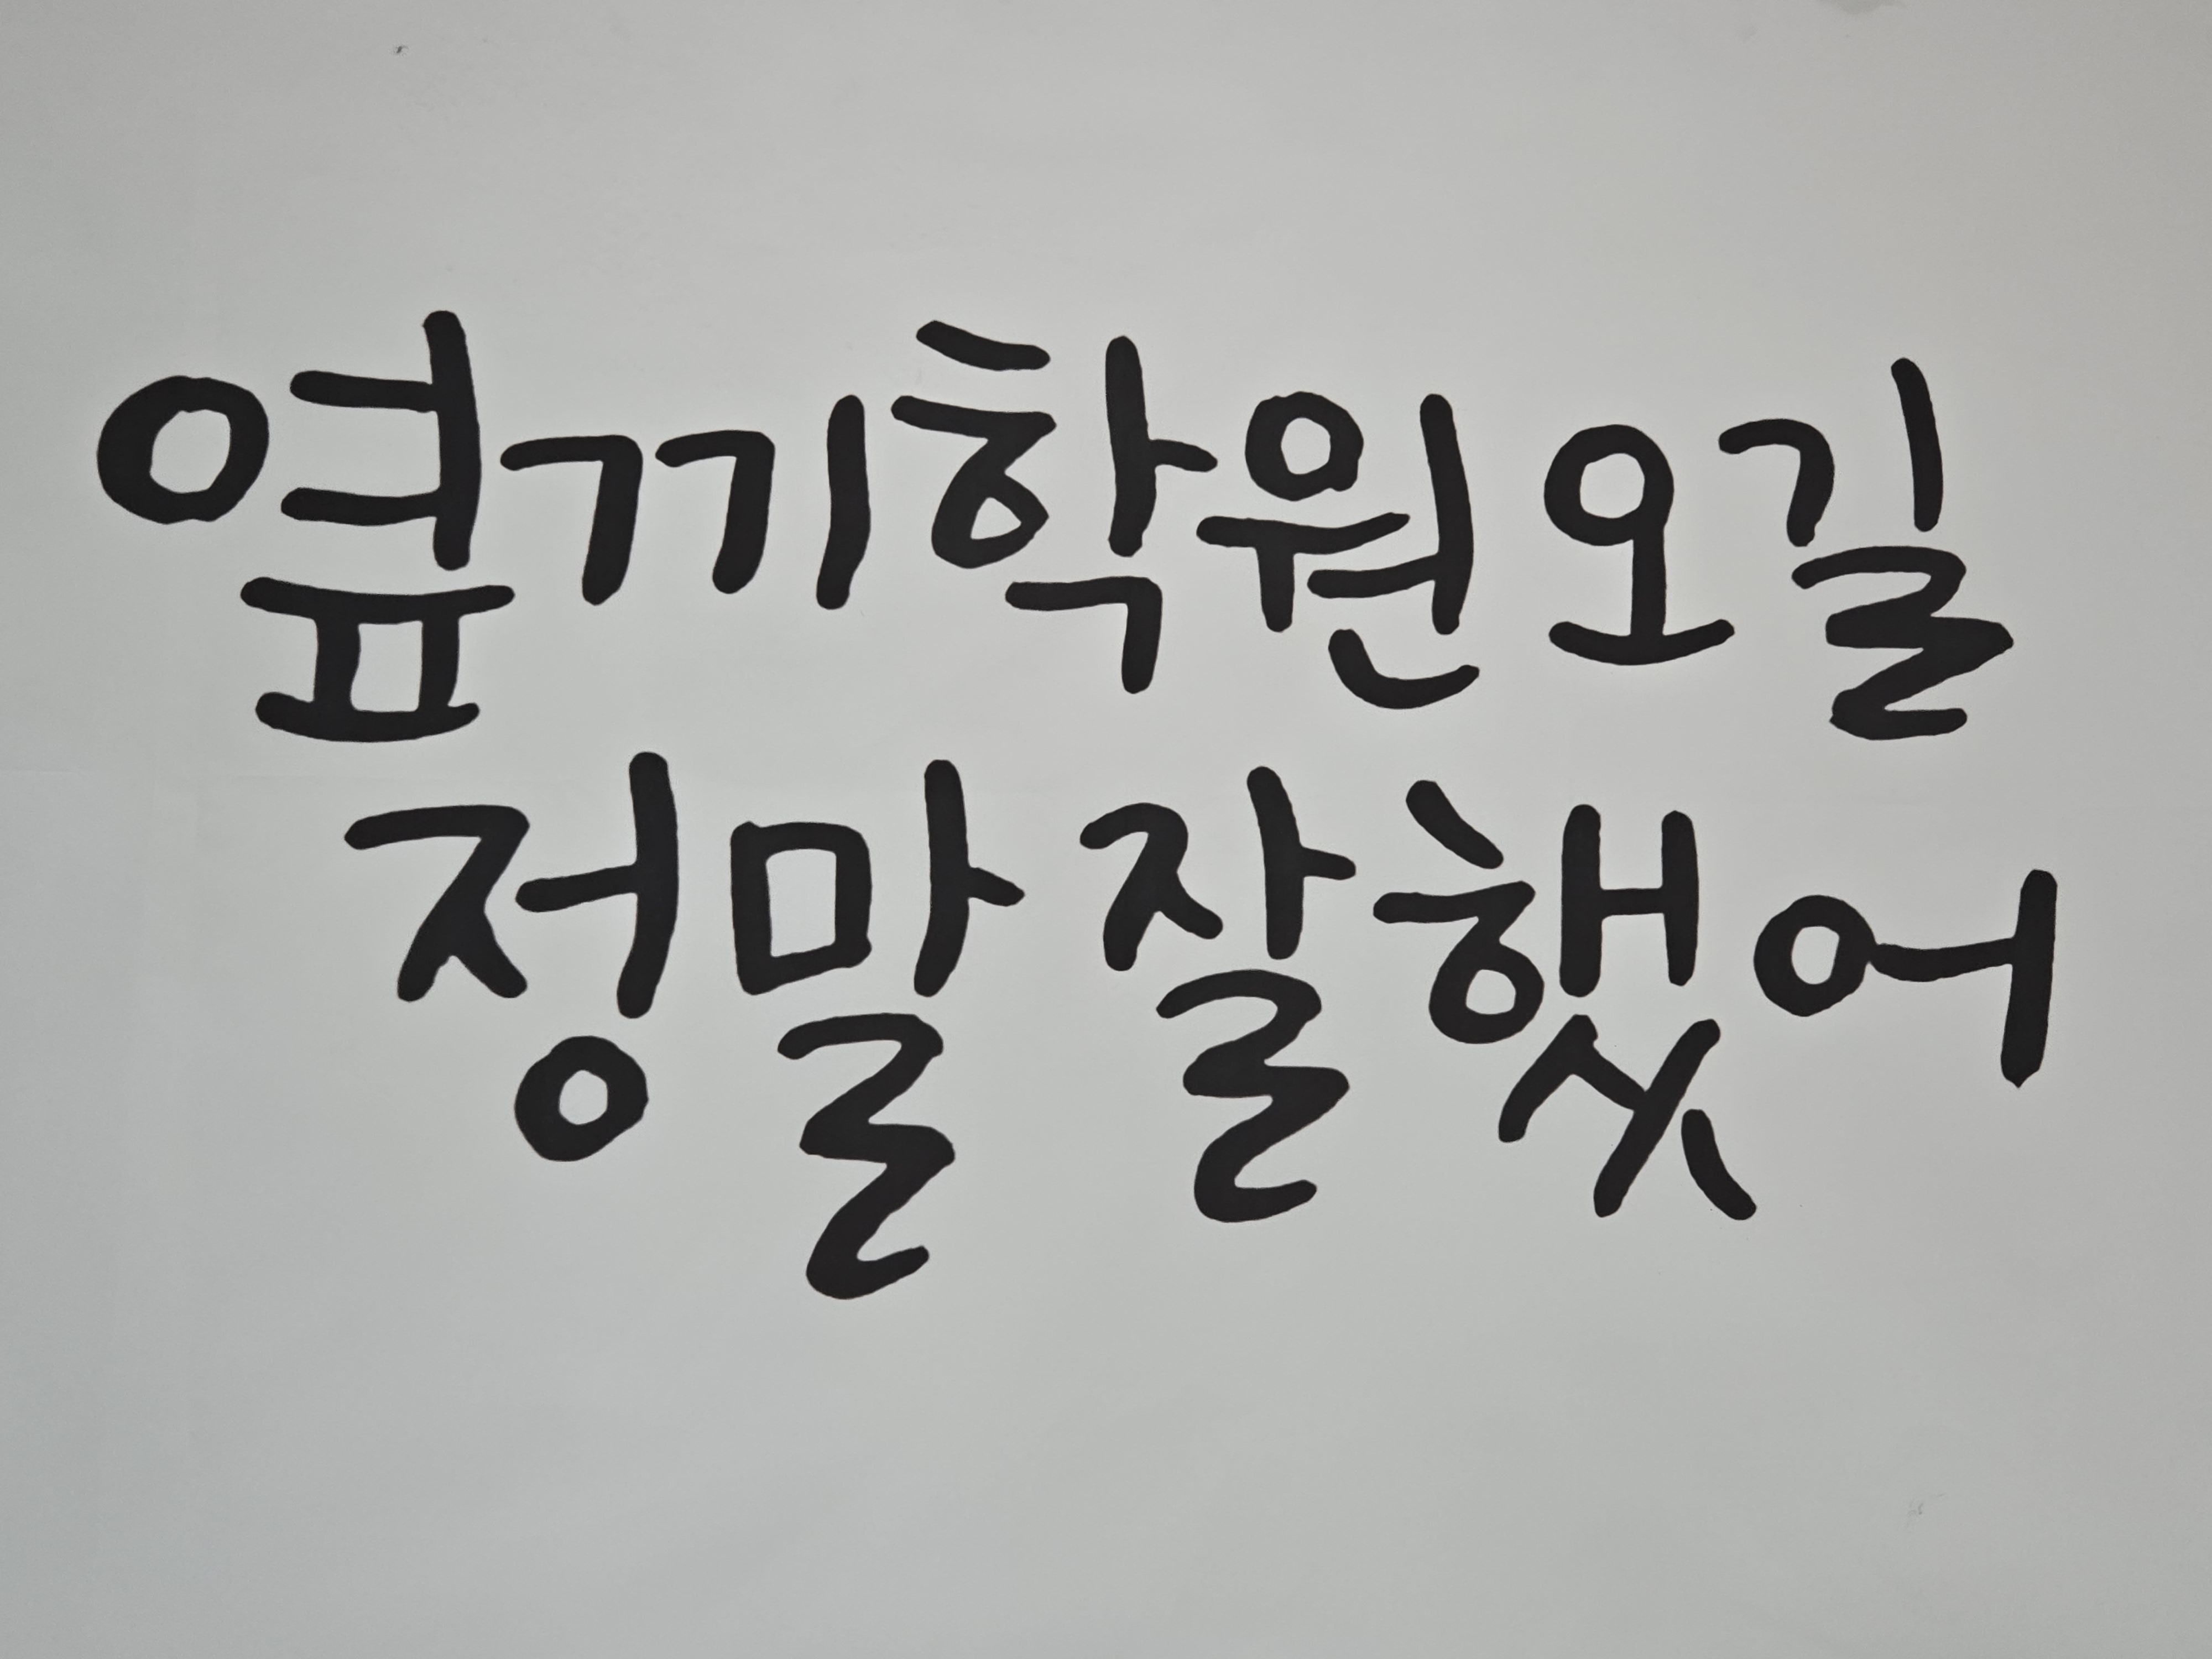 옆끼학원오길
정말 잘했어